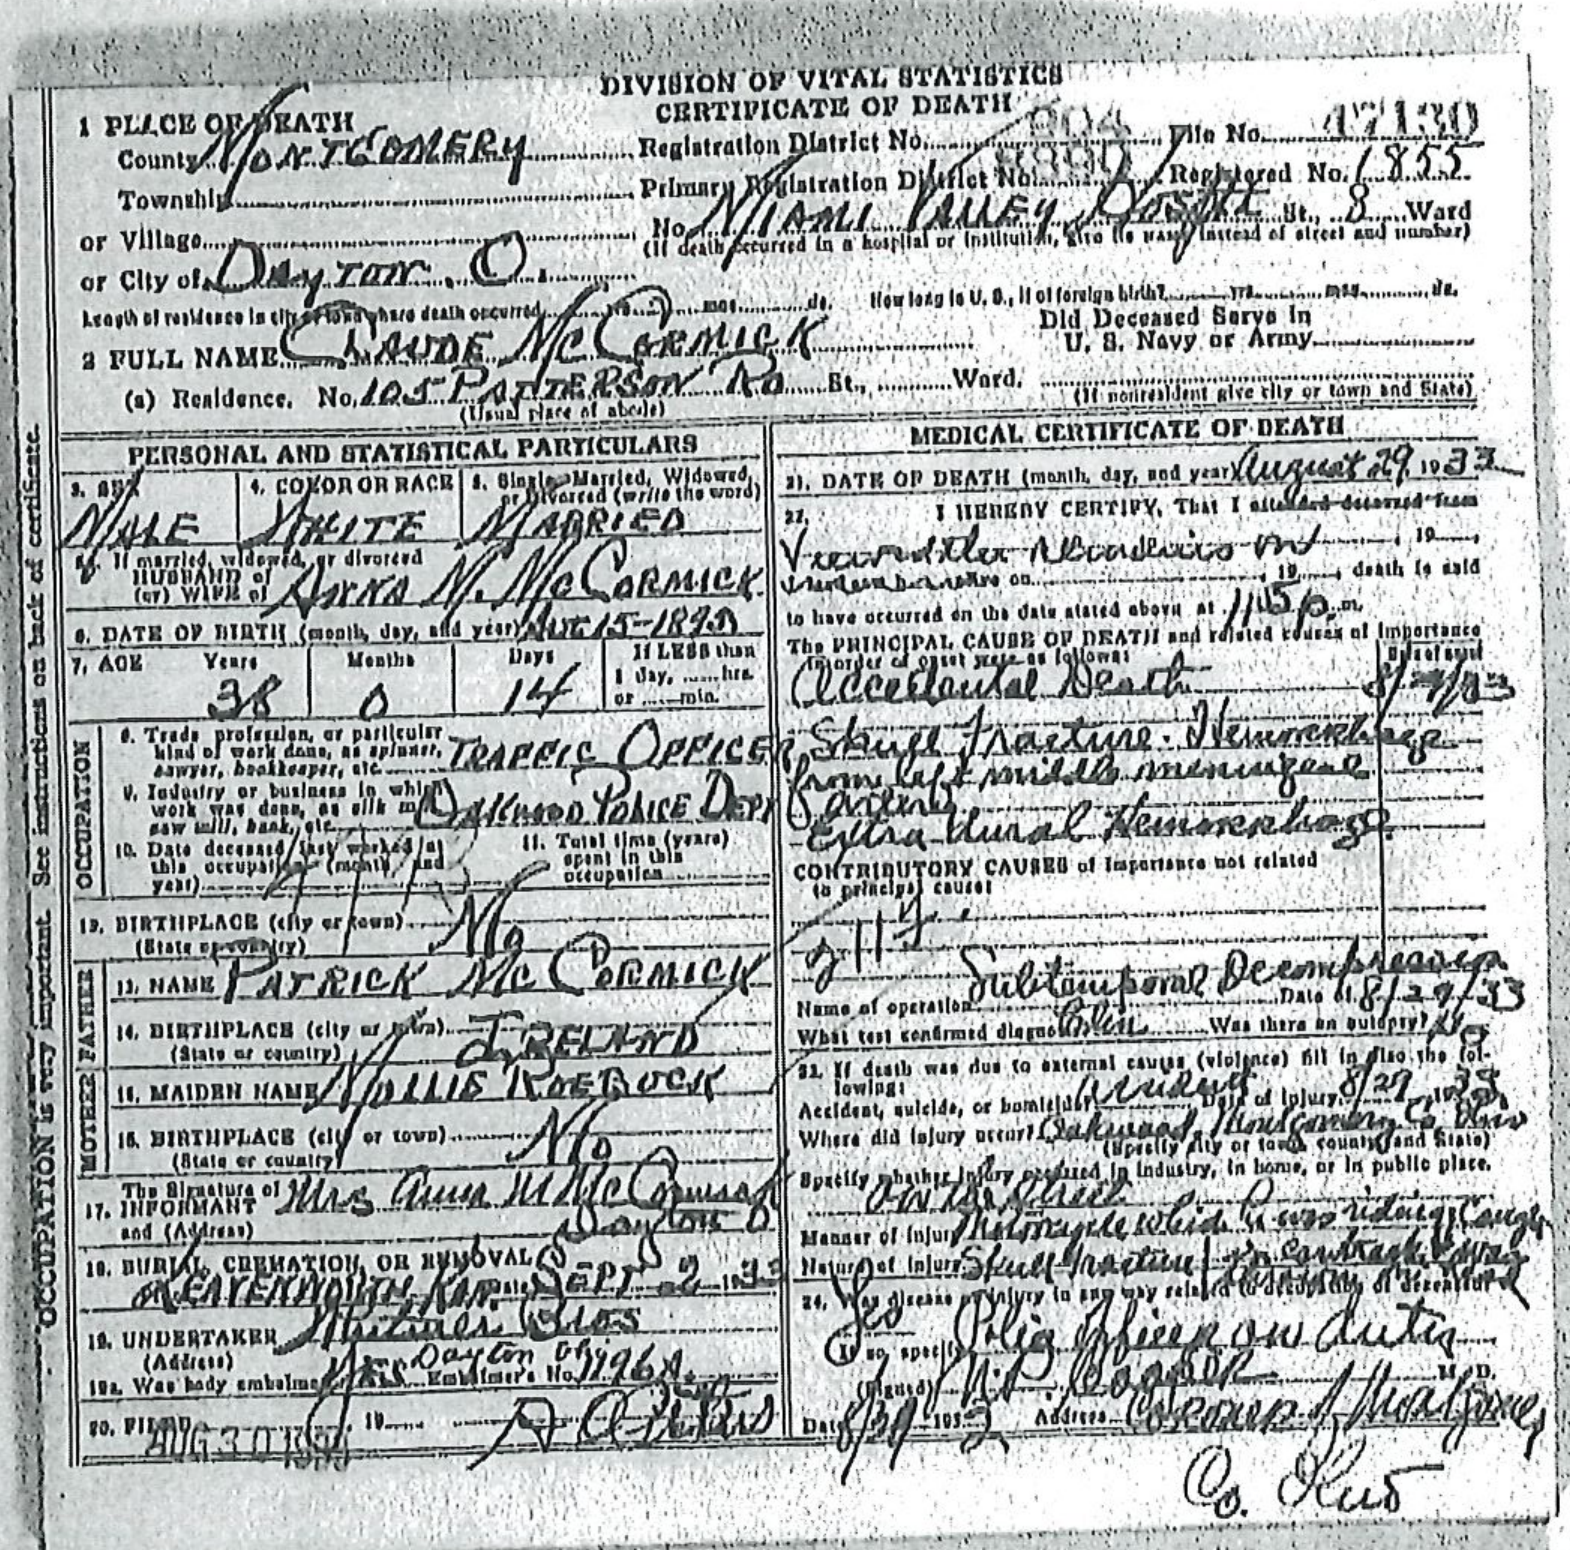 DIVISION OF VITAL STATISTICS
CERTIFICATE OF DEATH
1 PLACE OF DEATH
County MONTGOMERY Registration District No. 904 File No. 47130
Township Primary Registration District No. Registered No. 1855
No. MIAMI VALLEY HOSPITAL St., 8 Ward
or Village (If death occurred in a hospital or institution, give its name instead of street and number)
or City of DAYTON, O.
Length of residence in city or town where death occurred yrs. mos. ds. How long in U. S., if of foreign birth? yrs. mos. ds.
Did Deceased Serve in
U. S. Navy or Army
2 FULL NAME CLAUDE MC CORMICK
(a) Residence. No. 105 PATTERSON RD St., Ward.
(Usual place of abode) (If nonresident give city or town and State)
PERSONAL AND STATISTICAL PARTICULARS
3. SEX 4. COLOR OR RACE 5. Single, Married, Widowed,
or Divorced (write the word)
MALE WHITE MARRIED
If married, widowed, or divorced
HUSBAND of
(or) WIFE of ANNA M. MC CORMICK
6. DATE OF BIRTH (month, day, and year) AUG 15-1895
7. AGE Years Months Days If LESS than
1 day, hrs.
or min.
38 0 14
OCCUPATION
8. Trade, profession, or particular
kind of work done, as spinner,
sawyer, bookkeeper, etc. TRAFFIC OFFICER
9. Industry or business in which
work was done, as silk mill,
saw mill, bank, etc. OAKWOOD POLICE DEPT
10. Date deceased last worked at
this occupation (month and
year)
11. Total time (years)
spent in this
occupation
12. BIRTHPLACE (city or town) MO
(State or country)
FATHER
13. NAME PATRICK MC CORMICK
14. BIRTHPLACE (city or town) IRELAND
(State or country)
MOTHER
15. MAIDEN NAME MOLLIE ROEBUCK
16. BIRTHPLACE (city or town) MO
(State or country)
17. The Signature of
INFORMANT Mrs Anna M McCormick
and (Address) Dayton O
18. BURIAL, CREMATION, OR REMOVAL
LEAVENWORTH, KAN. SEPT 2 1933
19. UNDERTAKER Bros
(Address) Dayton Ohio
19a. Was body embalmed Yes Embalmer's No. 1196A
20. FILED AUG 30 1933 19
MEDICAL CERTIFICATE OF DEATH
21. DATE OF DEATH (month, day, and year) August 29, 1933
22. I HEREBY CERTIFY, That I attended deceased from
19
alive on 19 death is said
to have occurred on the date stated above at p. m.
The PRINCIPAL CAUSE OF DEATH and related causes of importance
in order of onset were as follows: Date of onset
Accidental Death 8/29/33
Skull Fracture. Hemorrhage
from left middle meningeal
artery
Extra dural Hemorrhage
CONTRIBUTORY CAUSES of importance not related
to principal cause:
Name of operation Subtemporal Decompression Date of 8/29/33
What test confirmed diagnosis? Clin Was there an autopsy? No
23. If death was due to external causes (violence) fill in also the fol-
lowing:
Accident, suicide, or homicide? Accident Date of injury 8/29, 1933
Where did injury occur? Oakwood, Montgomery Co Ohio
(Specify city or town, county, and State)
Specify whether injury occurred in industry, in home, or in public place.
On the street
Manner of injury Motorcycle which he was riding Caught
Nature of injury Skull Fracture
24. Was disease or injury in any way related to occupation of deceased?
Yes
If so, specify Police Officer on duty
(Signed) M. D.
Date 8/30 1933 Address Coroner of Montgomery
Co. Ohio
OCCUPATION is very important. See instructions on back of certificate.